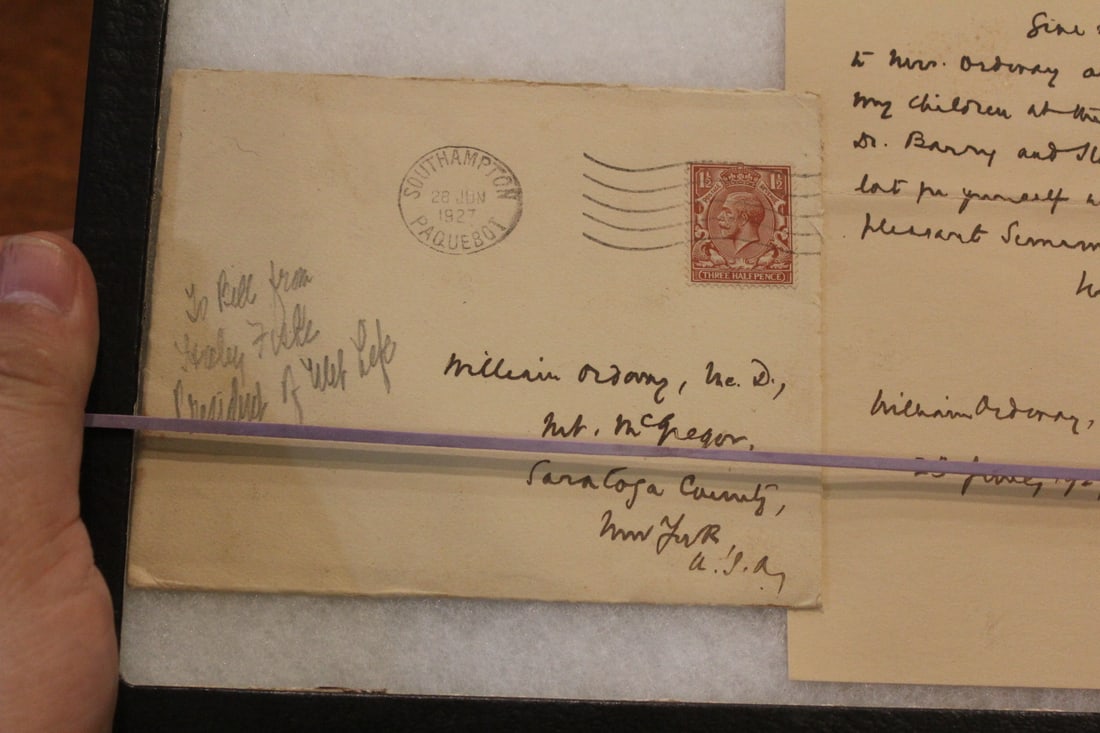 SOUTHAMPTON
28 JUN
1927
PAQUEBOT
1½ 1½
(THREE HALFPENCE)
To Bill from
Haley Fiske
President of Met Life
William Ordway, M.D.,
Mt. McGregor,
Saratoga County,
New York,
U.S.A.
Give
to Mrs. Ordway
my children at the
Dr. Barry and
for yourself
pleasant Summer
William Ordway,